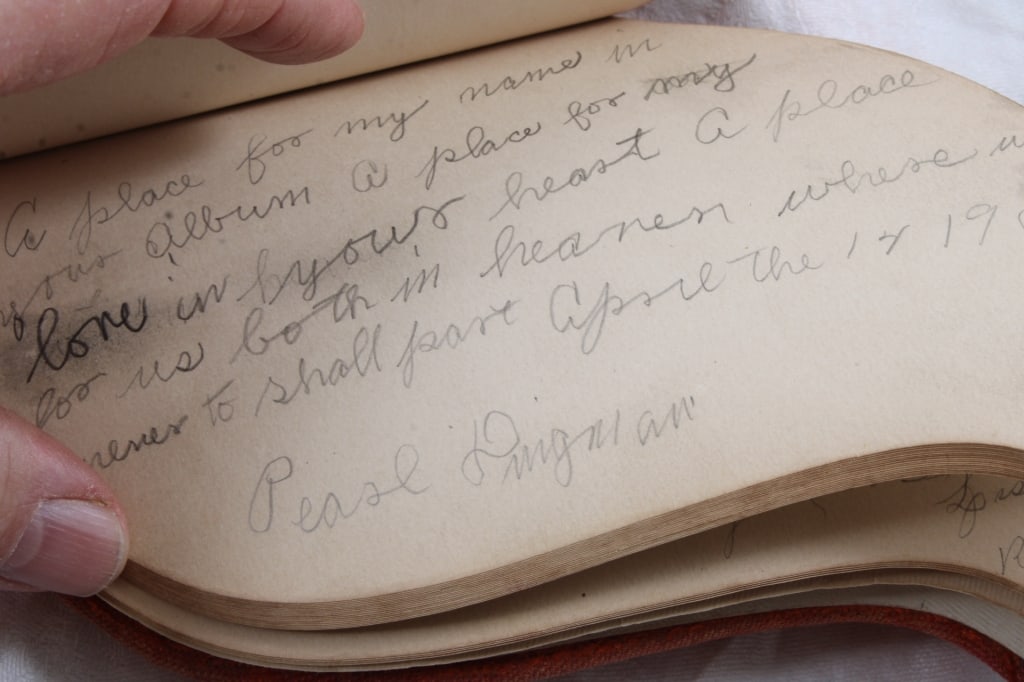 A place for my name in
your Album A place for my
love in hyour heart A place
for us both in heaven where
never to shall part April the 12 19
Pearl Dingman